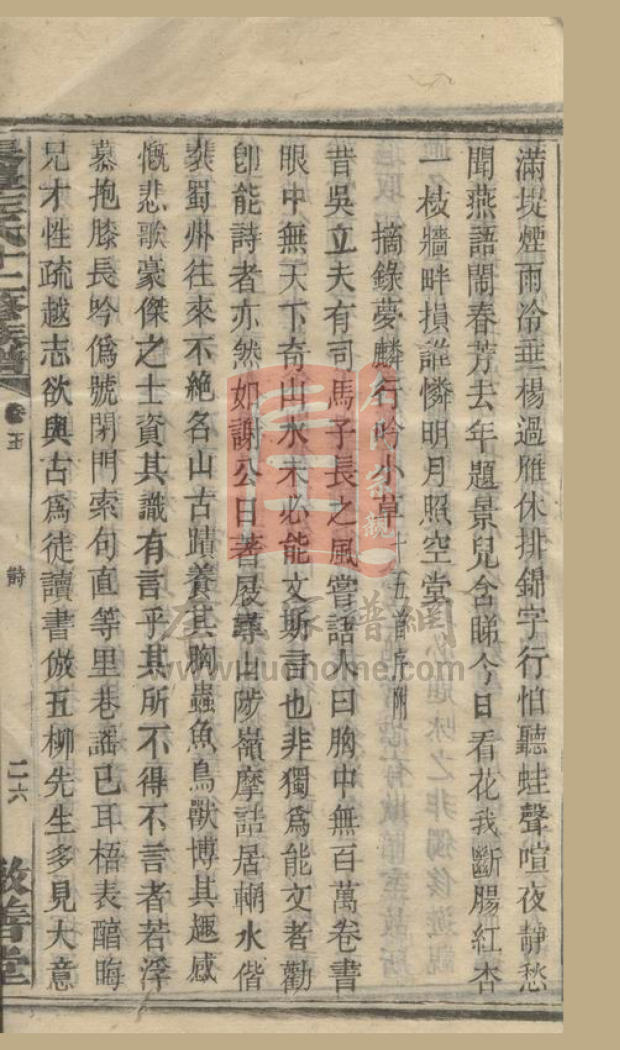 滿堤煙雨冷垂楊過雁休排錦字行怕聽蛙聲喧夜靜愁
聞燕語鬧春芳去年題景兒含睇今日看花我斷腸紅杏
一枝牆畔損誰憐明月照空堂
摘錄夢麟行吟小草十五首序附
昔吳立夫有司馬子長之風嘗語人曰胸中無百萬卷書
眼中無天下奇山水未必能文斯言也非獨爲能文者勸
卽能詩者亦然如謝公日著屐尋山陟嶺摩詰居輞水偕
裴蜀州往來不絕名山古蹟養其胸蟲魚鳥獸博其趣感
慨悲歌豪傑之士資其識有言乎其所不得不言者若浮
慕抱膝長吟僞號閉門索句直等里巷謠已耳梧表醕晦
兄才性疏越志欲與古爲徒讀書倣五柳先生多見大意
氏十二修族譜
卷五
詩
二六
敦善堂
www.
home.com